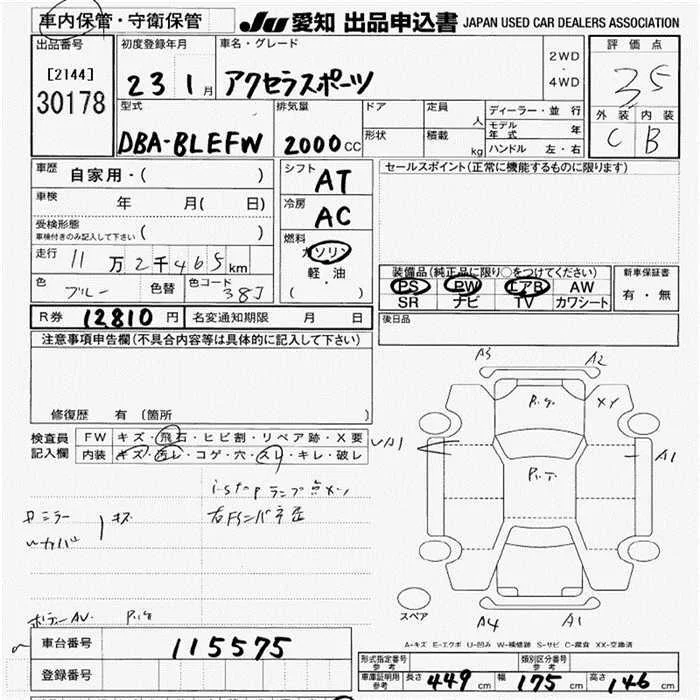 車内保管・守衛保管 JU 愛知 出品申込書 JAPAN USED CAR DEALERS ASSOCIATION
出品番号 初度登録年月 車名・グレード 評価点
[2144] 23 1月 アクセラスポーツ 2WD・4WD 35
30178
型式 排気量 ドア 定員 人 ディーラー・並行 外装 内装
モデル年式 年
DBA-BLEFW 2000CC 形状 積載 kg ハンドル 左・右 C B
車歴 自家用・( ) シフト AT セールスポイント(正常に機能するものに限ります)
車検 年 月( 日) 冷房 AC
受検形態
車検付きのみ記入して下さい ( ) 燃料 ガソリン
走行 11万2千465km 軽油 装備品(純正品に限り○をつけてください) 新車保証書
色 ブルー 色替 色コード 38J ( ) PS PW エアB AW 有・無
SR ナビ TV カワシート
R券 12810円 名変通知期限 月 日 後日品
注意事項申告欄(不具合内容等は具体的に記入して下さい)
A3 A2
P.g. XX
修復歴 有 (箇所 )
検査員 FW キズ・飛石・ヒビ割・リペア跡・X要
記入欄 内装 キズ・汚レ・コゲ・穴・スレ・キレ・破レ
A1
i-stopランプ点メツ
キズ
スペア
A4 A1
A-キズ E-エクボ U-凹み W-補修跡 S-サビ C-腐食 XX-交換済
車台番号 115575
登録番号
形式指定番号 参考 類別区分番号 参考
車庫証明用 参考 長さ 449cm 幅 175cm 高さ 146cm